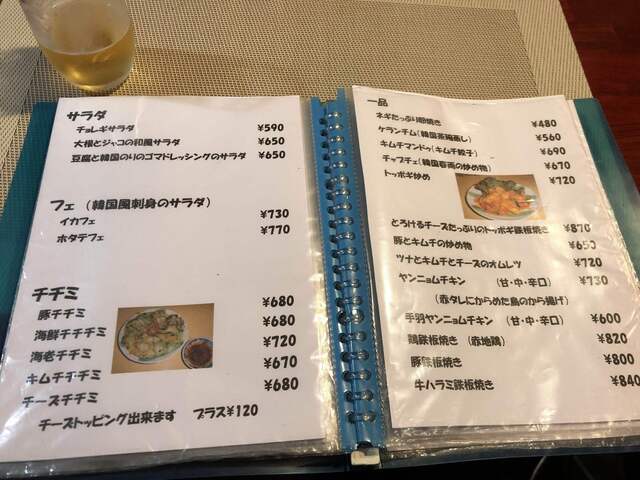 サラダ
チョレギサラダ ¥590
大根とジャコの和風サラダ ¥650
豆腐と韓国のりのゴマドレッシングのサラダ ¥650
フェ（韓国風刺身のサラダ）
イカフェ ¥730
ホタテフェ ¥770
チヂミ
豚チヂミ ¥680
海鮮チヂミ ¥680
海老チヂミ ¥720
キムチチヂミ ¥670
チーズチヂミ ¥680
チーズトッピング出来ます プラス¥120
一品
ネギたっぷり卵焼き ¥480
ケランチム（韓国茶碗蒸し） ¥560
キムチマンドゥ（キムチ餃子） ¥690
チャプチェ（韓国春雨の炒め物） ¥670
トッポギ炒め ¥720
とろけるチーズたっぷりのトッポギ鉄板焼き ¥870
豚とキムチの炒め物 ¥650
ツナとキムチとチーズのオムレツ ¥720
ヤンニョムチキン （甘・中・辛口） ¥730
（赤タレにからめた鳥のから揚げ）
手羽ヤンニョムチキン （甘・中・辛口） ¥600
鶏鉄板焼き（赤地鶏） ¥820
豚鉄板焼き ¥800
牛ハラミ鉄板焼き ¥840